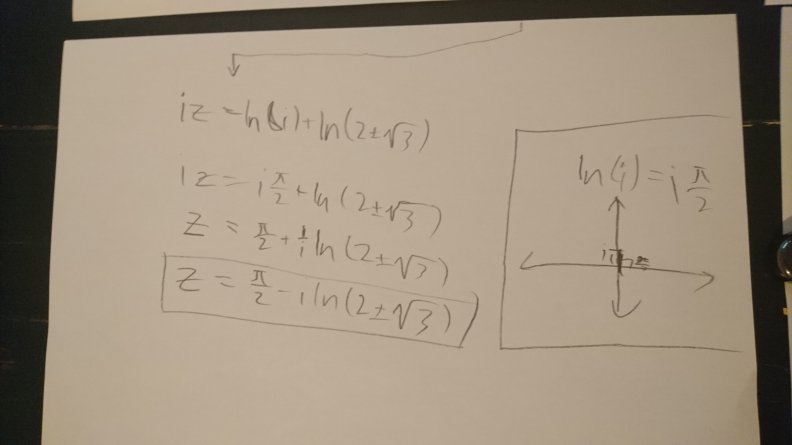 iz = ln(i) + ln(2±√3)
iz = i π/2 + ln(2±√3)
z = π/2 + 1/i ln(2±√3)
z = π/2 - i ln(2±√3)
ln(i) = i π/2